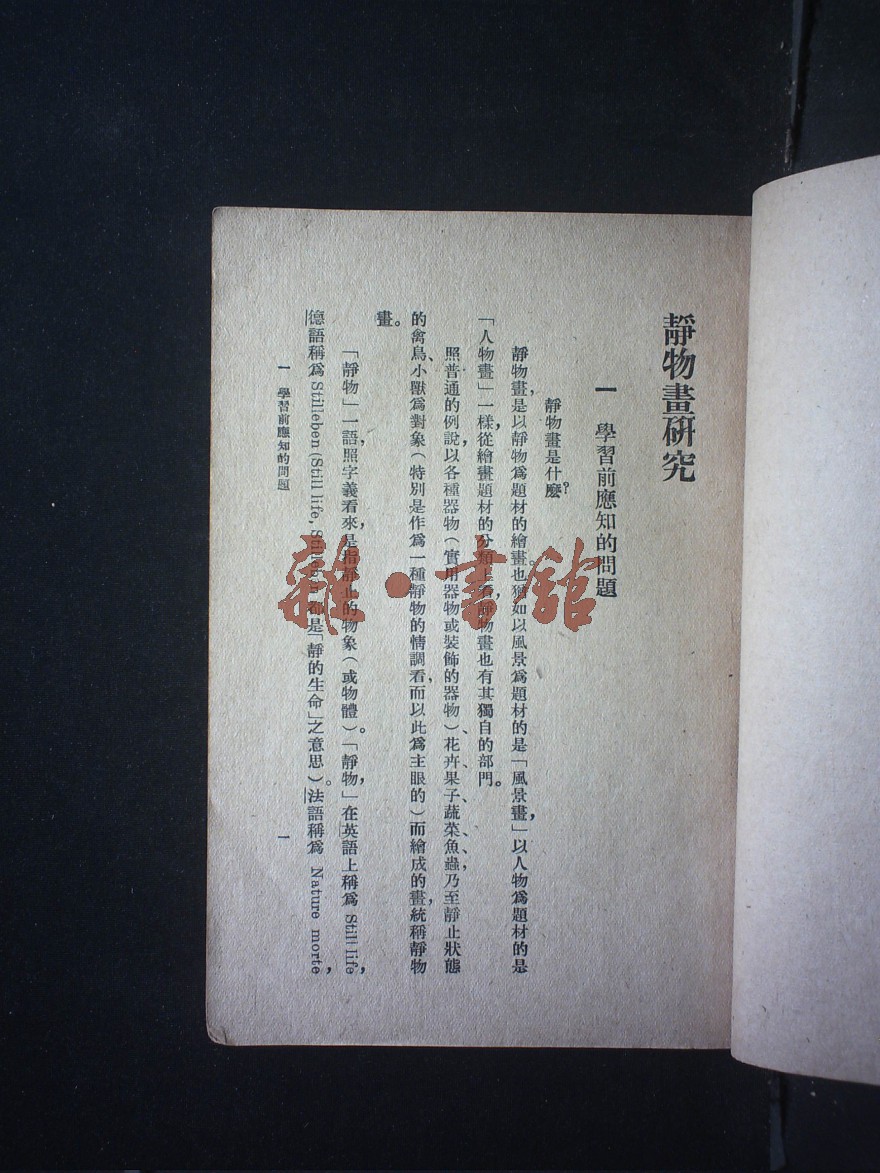 靜物畫研究
一　學習前應知的問題
靜物畫是什麼？
靜物畫，是以靜物爲題材的繪畫也猶如以風景爲題材的是「風景畫」，以人物爲題材的是
「人物畫」一樣，從繪畫題材的分類上看，靜物畫也有其獨自的部門。
照普通的例說，以各種器物（實用器物或裝飾的器物）、花卉、果子、蔬菜、魚、蟲，乃至靜止狀態
的禽鳥、小獸爲對象（特別是作爲一種靜物的情調看，而以此爲主眼的）而繪成的畫，統稱靜物
畫。
「靜物」一語，照字義看來，是指靜止的物象（或物體）。「靜物」，在英語上稱爲 Still-life，
德語稱爲 Stilleben (Still life, 都是「靜的生命」之意思）。法語稱爲 Nature morte，
一　學習前應知的問題
一
雜·書館